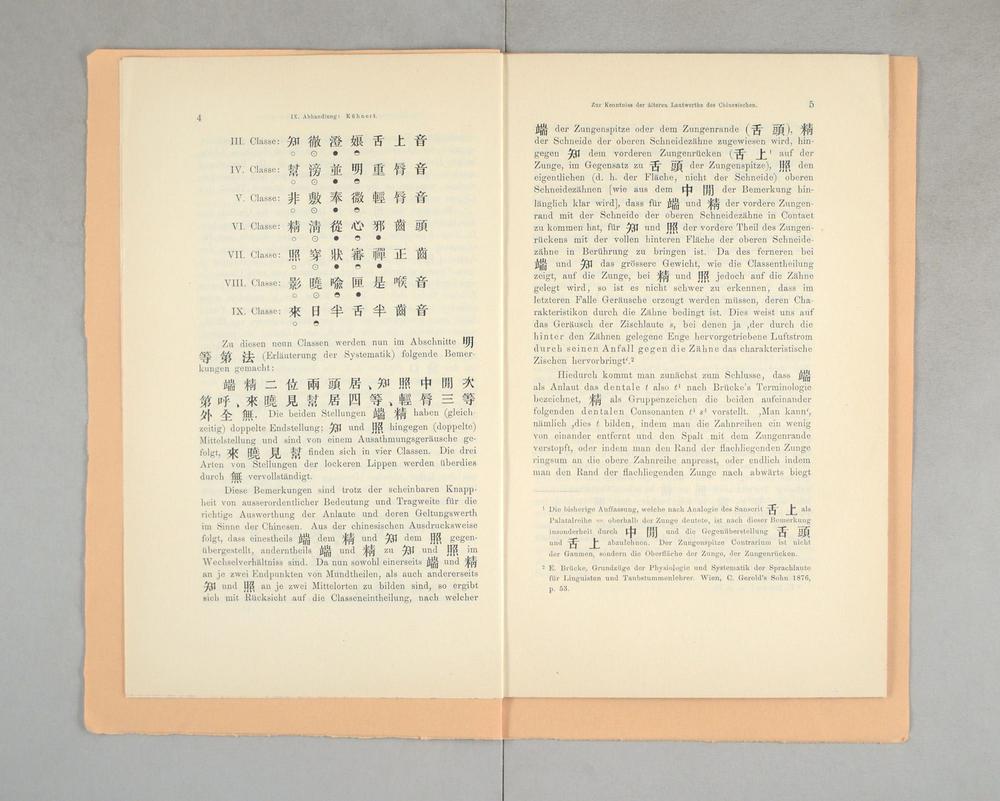 4
IX. Abhandlung: Kühnert.
III. Classe: 知 徹 澄 娘 舌 上 音
IV. Classe: 幫 滂 並 明 重 脣 音
V. Classe: 非 敷 奉 微 輕 脣 音
VI. Classe: 精 淸 從 心 邪 齒 頭
VII. Classe: 照 穿 狀 審 禪 正 齒
VIII. Classe: 影 曉 喩 匣 是 喉 音
IX. Classe: 來 日 半 舌 半 齒 音
Zu diesen neun Classen werden nun im Abschnitte 明
等 第 法 (Erläuterung der Systematik) folgende Bemer-
kungen gemacht:
端 精 二 位 兩 頭 居、知 照 中 閒 次
第 呼、來 曉 見 幫 居 四 等、輕 脣 三 等
外 全 無. Die beiden Stellungen 端 精 haben (gleich-
zeitig) doppelte Endstellung; 知 und 照 hingegen (doppelte)
Mittelstellung und sind von einem Ausathmungsgeräusche ge-
folgt, 來 曉 見 幫 finden sich in vier Classen. Die drei
Arten von Stellungen der lockeren Lippen werden überdies
durch 無 vervollständigt.
Diese Bemerkungen sind trotz der scheinbaren Knapp-
heit von ausserordentlicher Bedeutung und Tragweite für die
richtige Auswerthung der Anlaute und deren Geltungswerth
im Sinne der Chinesen. Aus der chinesischen Ausdrucksweise
folgt, dass einestheils 端 dem 精 und 知 dem 照 gegen-
übergestellt, anderntheils 端 und 精 zu 知 und 照 im
Wechselverhältniss sind. Da nun sowohl einerseits 端 und 精
an je zwei Endpunkten von Mundtheilen, als auch andererseits
知 und 照 an je zwei Mittelorten zu bilden sind, so ergibt
sich mit Rücksicht auf die Classeneintheilung, nach welcher
Zur Kenntniss der älteren Lautwerthe des Chinesischen.
5
端 der Zungenspitze oder dem Zungenrande (舌 頭), 精
der Schneide der oberen Schneidezähne zugewiesen wird, hin-
gegen 知 dem vorderen Zungenrücken (舌 上¹ auf der
Zunge, im Gegensatz zu 舌 頭 der Zungenspitze), 照 den
eigentlichen (d. h. der Fläche, nicht der Schneide) oberen
Schneidezähnen [wie aus dem 中 閒 der Bemerkung hin-
länglich klar wird], dass für 端 und 精 der vordere Zungen-
rand mit der Schneide der oberen Schneidezähne in Contact
zu kommen hat, für 知 und 照 der vordere Theil des Zungen-
rückens mit der vollen hinteren Fläche der oberen Schneide-
zähne in Berührung zu bringen ist. Da des ferneren bei
端 und 知 das grössere Gewicht, wie die Classentheilung
zeigt, auf die Zunge, bei 精 und 照 jedoch auf die Zähne
gelegt wird, so ist es nicht schwer zu erkennen, dass im
letzteren Falle Geräusche erzeugt werden müssen, deren Cha-
rakteristikon durch die Zähne bedingt ist. Dies weist uns auf
das Geräusch der Zischlaute s, bei denen ja ‚der durch die
hinter den Zähnen gelegene Enge hervorgetriebene Luftstrom
durch seinen Anfall gegen die Zähne das charakteristische
Zischen hervorbringt‘.²
Hiedurch kommt man zunächst zum Schlusse, dass 端
als Anlaut das dentale t also t⁴ nach Brücke's Terminologie
bezeichnet, 精 als Gruppenzeichen die beiden aufeinander
folgenden dentalen Consonanten t⁴ s⁴ vorstellt. ‚Man kann‘,
nämlich ‚dies t bilden, indem man die Zahnreihen ein wenig
von einander entfernt und den Spalt mit dem Zungenrande
verstopft, oder indem man den Rand der flachliegenden Zunge
ringsum an die obere Zahnreihe anpresst, oder endlich indem
man den Rand der flachliegenden Zunge nach abwärts biegt
¹ Die bisherige Auffassung, welche nach Analogie des Sanscrit 舌 上 als
Palatalreihe = oberhalb der Zunge deutete, ist nach dieser Bemerkung
insonderheit durch 中 閒 und die Gegenüberstellung 舌 頭
und 舌 上 abzulehnen. Der Zungenspitze Contrarium ist nicht
der Gaumen, sondern die Oberfläche der Zunge, der Zungenrücken.
² E. Brücke, Grundzüge der Physiologie und Systematik der Sprachlaute
für Linguisten und Taubstummenlehrer. Wien, C. Gerold's Sohn 1876,
p. 53.